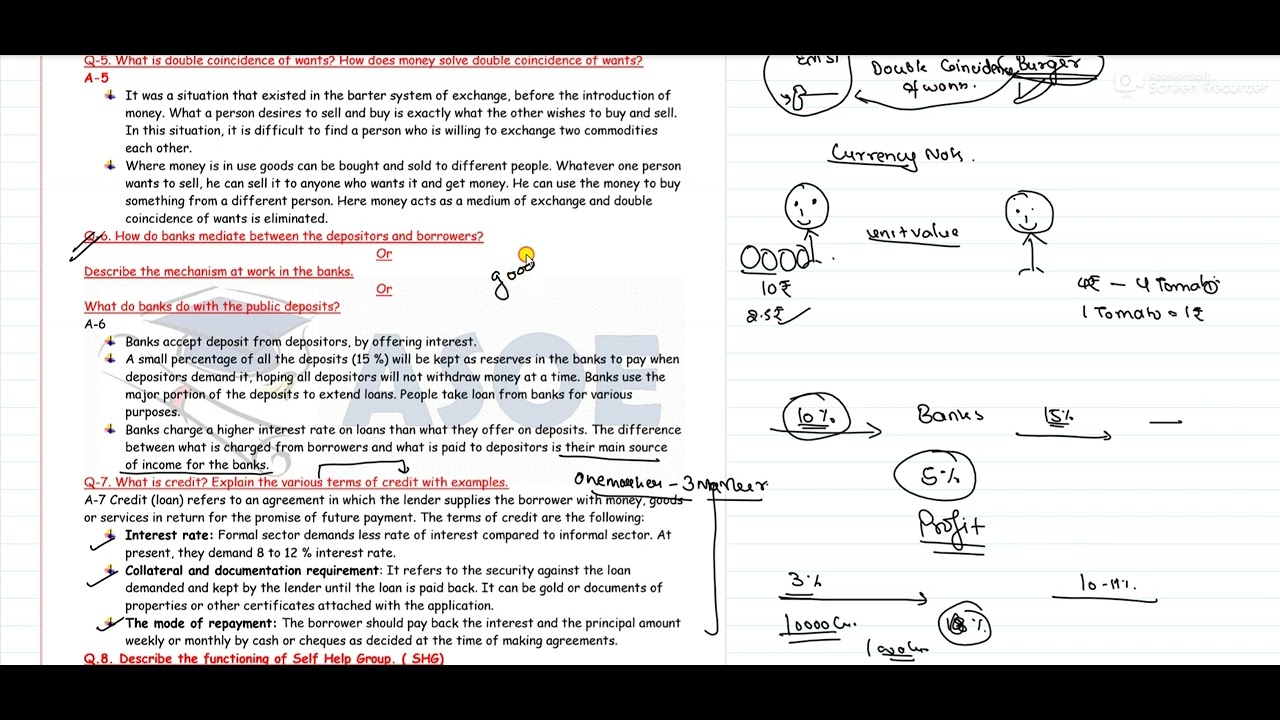 Q-5. What is double coincidence of wants? How does money solve double coincidence of wants?
A-5
It was a situation that existed in the barter system of exchange, before the introduction of
money. What a person desires to sell and buy is exactly what the other wishes to buy and sell.
In this situation, it is difficult to find a person who is willing to exchange two commodities
each other.
Where money is in use goods can be bought and sold to different people. Whatever one person
wants to sell, he can sell it to anyone who wants it and get money. He can use the money to buy
something from a different person. Here money acts as a medium of exchange and double
coincidence of wants is eliminated.
Q-6. How do banks mediate between the depositors and borrowers?
Or
Describe the mechanism at work in the banks.
Or
What do banks do with the public deposits?
A-6
Banks accept deposit from depositors, by offering interest.
A small percentage of all the deposits (15 %) will be kept as reserves in the banks to pay when
depositors demand it, hoping all depositors will not withdraw money at a time. Banks use the
major portion of the deposits to extend loans. People take loan from banks for various
purposes.
Banks charge a higher interest rate on loans than what they offer on deposits. The difference
between what is charged from borrowers and what is paid to depositors is their main source
of income for the banks.
Q-7. What is credit? Explain the various terms of credit with examples.
A-7 Credit (loan) refers to an agreement in which the lender supplies the borrower with money, goods
or services in return for the promise of future payment. The terms of credit are the following:
Interest rate: Formal sector demands less rate of interest compared to informal sector. At
present, they demand 8 to 12 % interest rate.
Collateral and documentation requirement: It refers to the security against the loan
demanded and kept by the lender until the loan is paid back. It can be gold or documents of
properties or other certificates attached with the application.
The mode of repayment: The borrower should pay back the interest and the principal amount
weekly or monthly by cash or cheques as decided at the time of making agreements.
Q.8. Describe the functioning of Self Help Group. ( SHG)
ASOE
good
3
EMI
Double Coincidence
of wants.
Burger
Screen Recorder
Currency Nots.
unit value
10₹
2.5₹
4₹ - 4 Tomato
1 Tomato = 1₹
10%
Banks
15%
5%
Profit
3%
10000Cr.